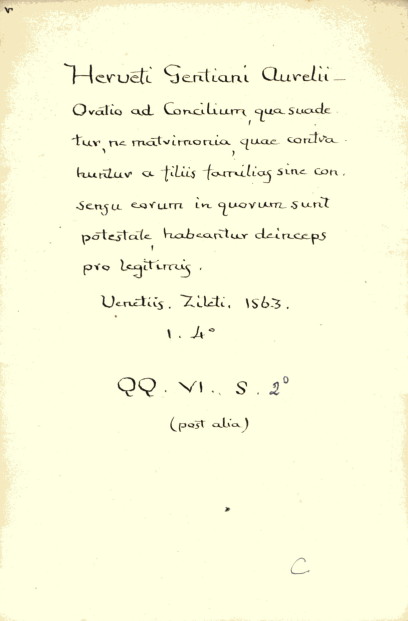 Herveti Gentiani Aurelii-
Oratio ad Concilium, qua suade
tur, ne matrimonia, quae contra-
huntur a filiis familias sine con-
sensu eorum in quorum sunt
potestate, habeantur deinceps
pro legitimis.
Venetiis. Zileti. 1563.
1. 4°
QQ. VI. S. 2°
(post alia)
C